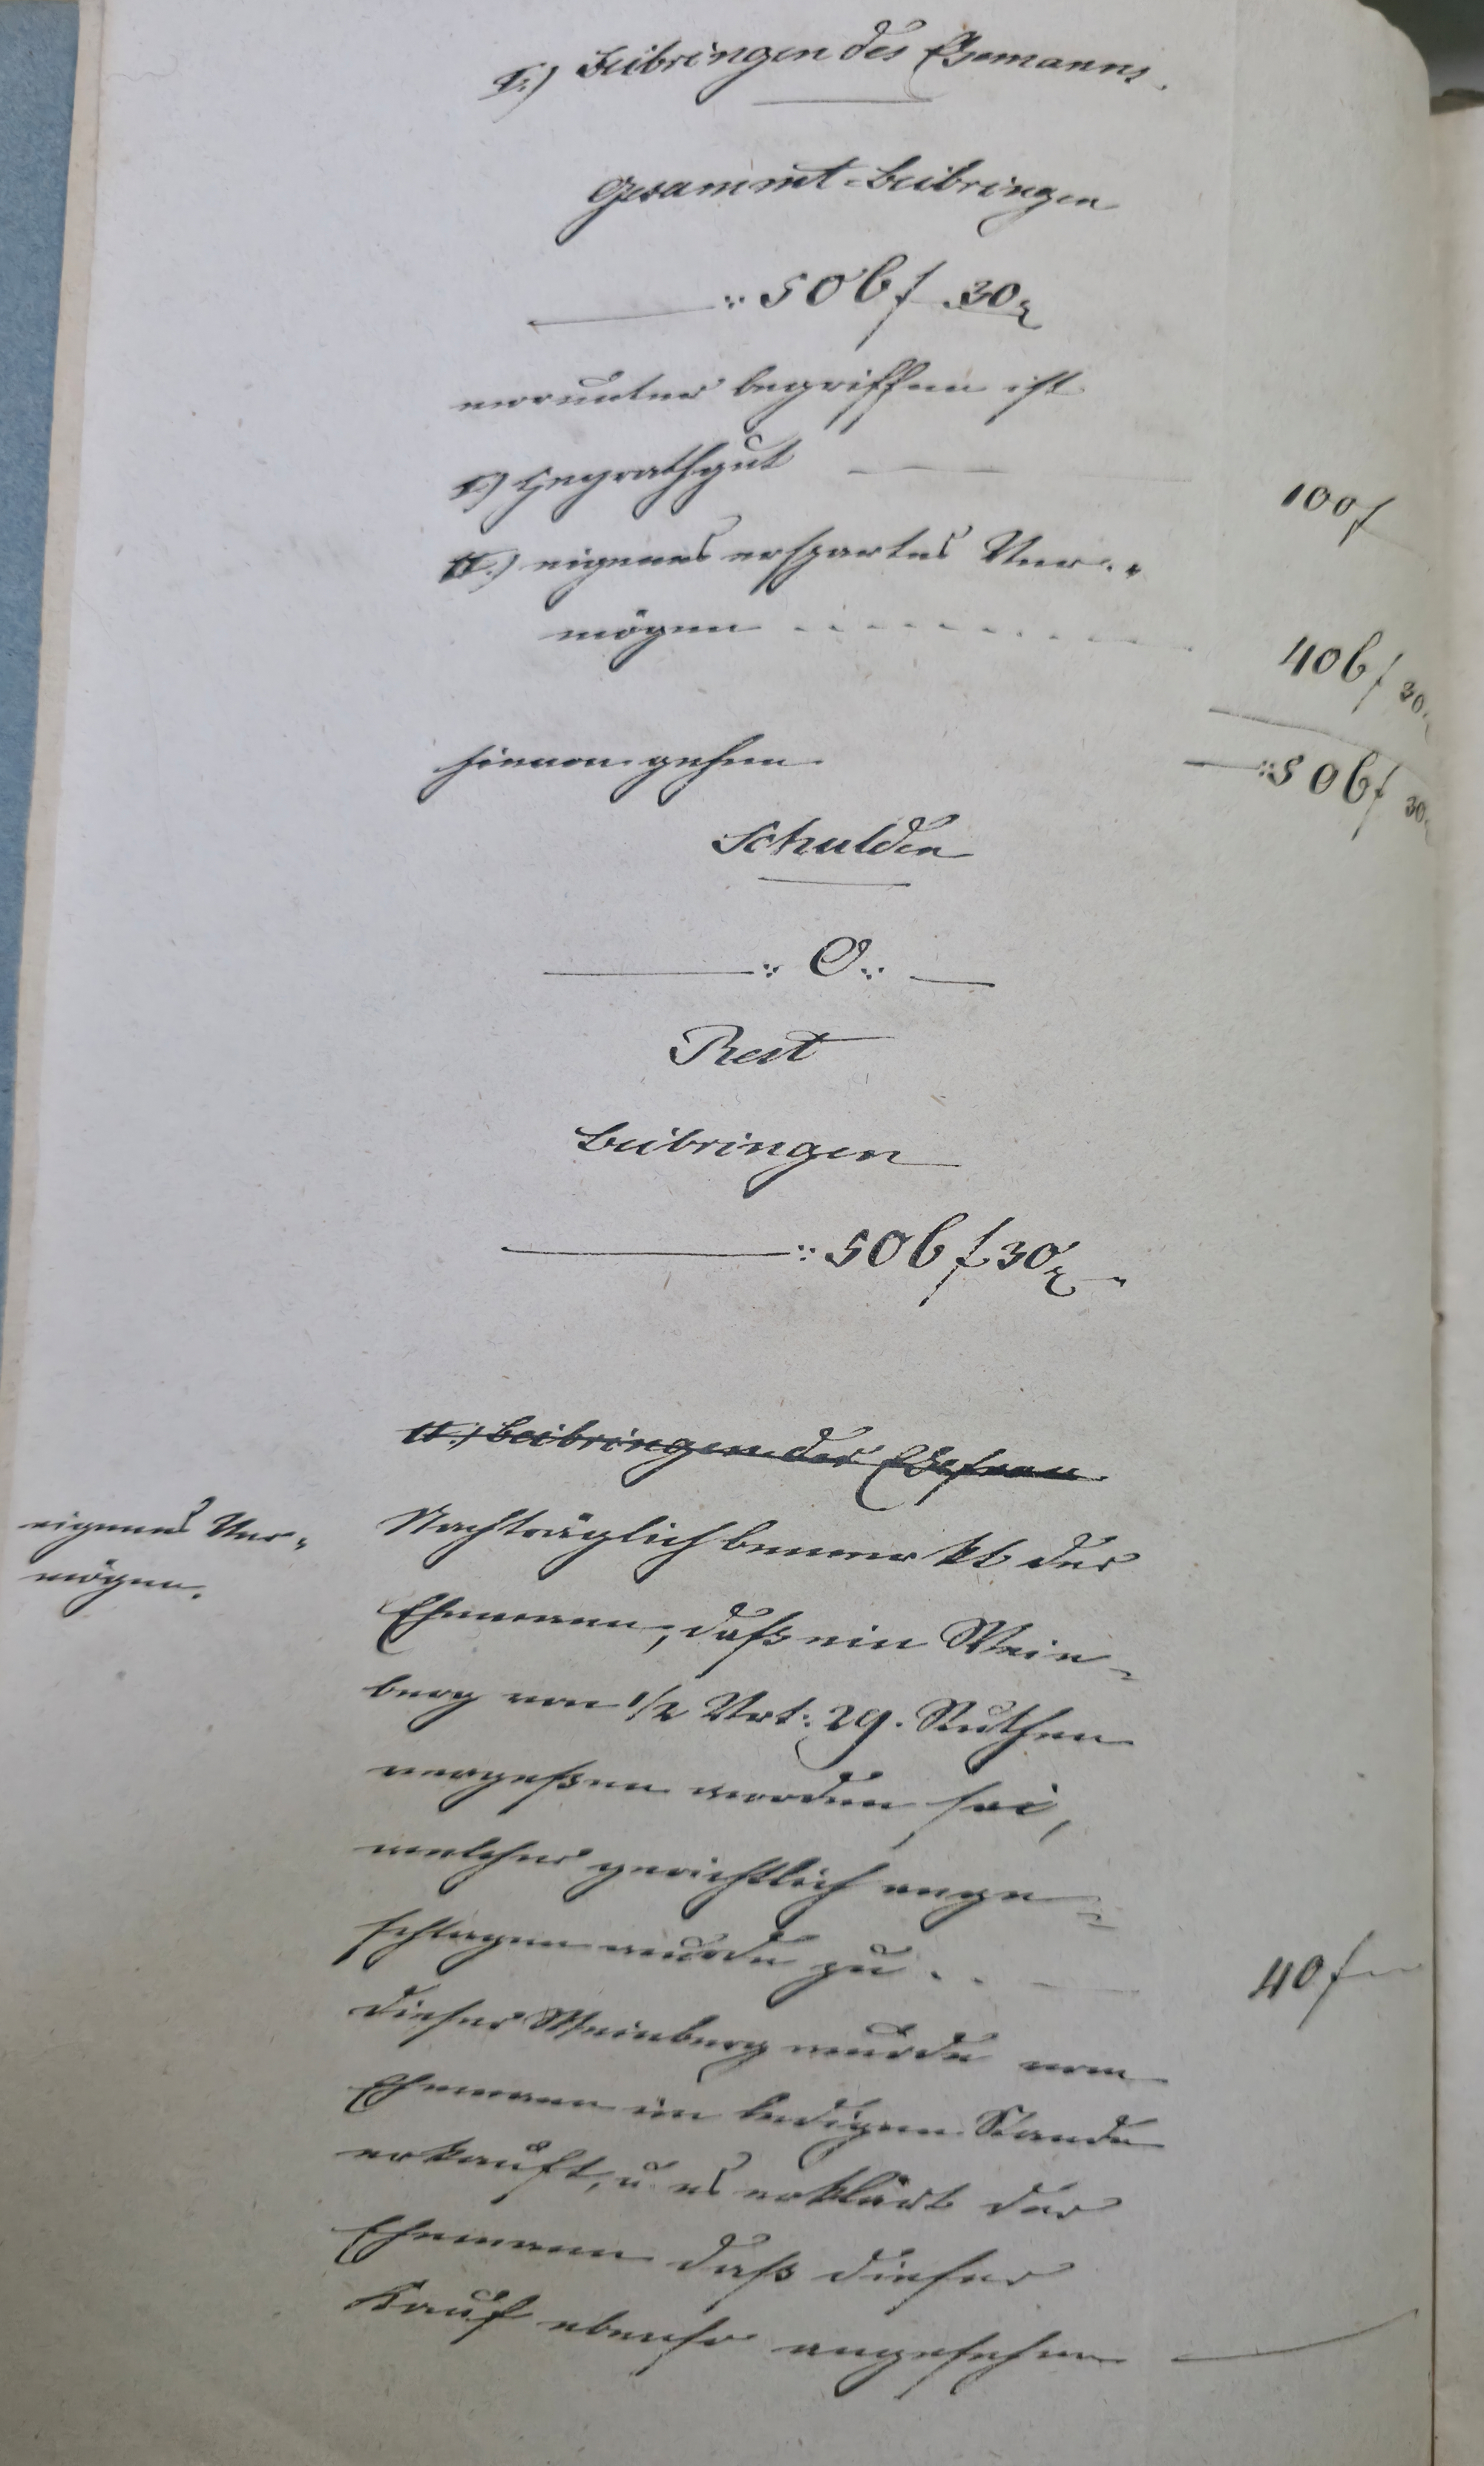 I.) Beibringen des Ehemanns.
Gesammt-Beibringen
506 f 30 x
worunter begriffen ist
I.) Heyrathgut 100 f
II.) eigenes erspartes Ver-
mögen 406 f 30 x
506 f 30 x
hievon gehen
Schulden
O.
Rest
Beibringen
506 f 30 x
II.) Beibringen der Ehefrau
eigenes Ver-
mögen.
Nachträglich bemerkt der
Ehemann, daß ein Wein-
berg von 1/2 Vrt: 29. Ruthen
vergeßen worden sei,
welcher gerichtlich ange-
schlagen wurde zu 40 f
Dieser Weinberg wurde vom
Ehemann im ledigen Stande
erkauft, u. es erklärt der
Ehemann daß dieser
Kauf ebenso angesehen